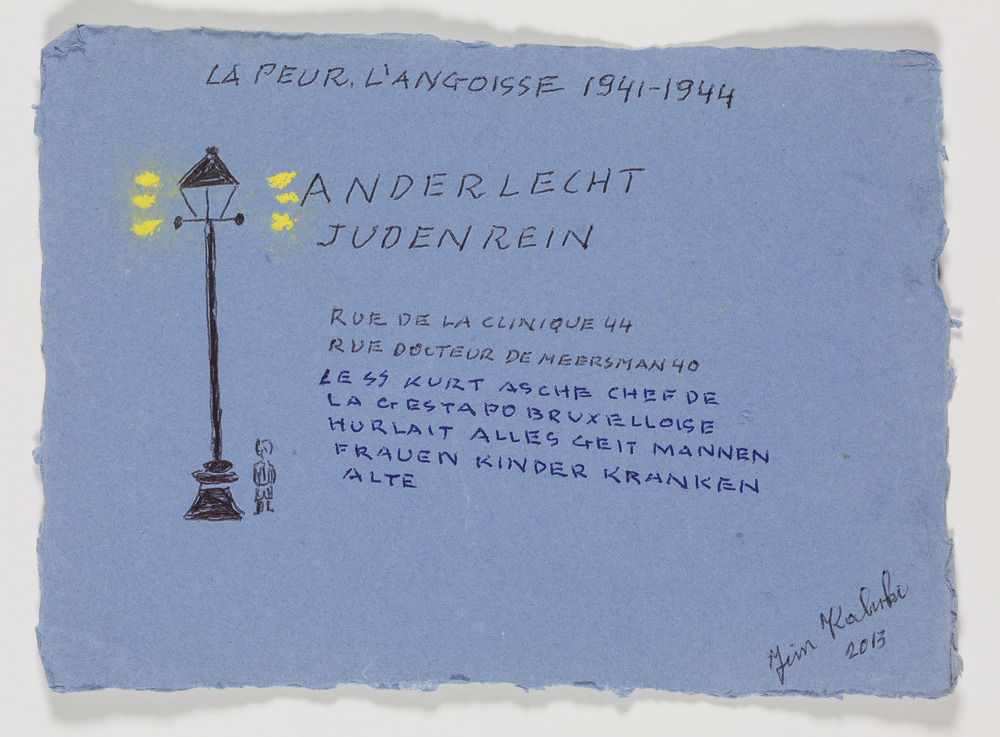 LA PEUR. L'ANGOISSE 1941-1944
ANDERLECHT
JUDENREIN
RUE DE LA CLINIQUE 44
RUE DOCTEUR DE MEERSMAN 40
LE SS KURT ASCHE CHEF DE
LA GESTAPO BRUXELLOISE
HURLAIT ALLES GEIT MANNEN
FRAUEN KINDER KRANKEN
ALTE
2013